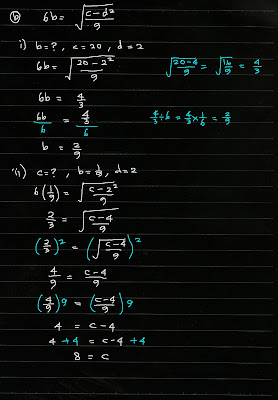 b 6b = √((c-d²)/9)
i) b=?, c=20, d=2
6b = √((20-2²)/9) √((20-4)/9) = √(16/9) = 4/3
6b = 4/3
6b/6 = (4/3)/6 4/3 ÷ 6 = 4/3 × 1/6 = 2/9
b = 2/9
ii) c=?, b=1/9, d=2
6(1/9) = √((c-2²)/9)
2/3 = √((c-4)/9)
(2/3)² = (√((c-4)/9))²
4/9 = (c-4)/9
(4/9)9 = ((c-4)/9)9
4 = c-4
4 +4 = c-4 +4
8 = c